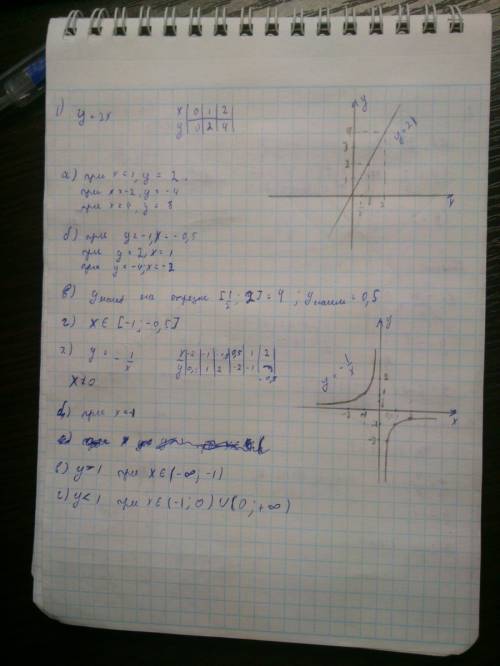 1) y = 2x
x | 0 | 1 | 2
y | 0 | 2 | 4
y
y=2x
x
а) при x=1, y = 2
при x=-2, y = -4
при x=4, y = 8
б) при y=-1, x = -0,5
при y=2, x=1
при y=-4, x=-2
в) y наиб на отрезке ; 2] = 4 ; y наим = 0,5
г) x ∈ [-1; -0,5]
2) y = -1/x
x | -2 | -1 | -0,5 | 0,5 | 1 | 2
y | 0,5 | 1 | 2 | -2 | -1 | -0,5
x≠0
y
y = -1/x
x
б) при x=1
в) y>1 при x∈(-∞; -1)
г) y<1 при x∈(-1; 0)∪(0; +∞)